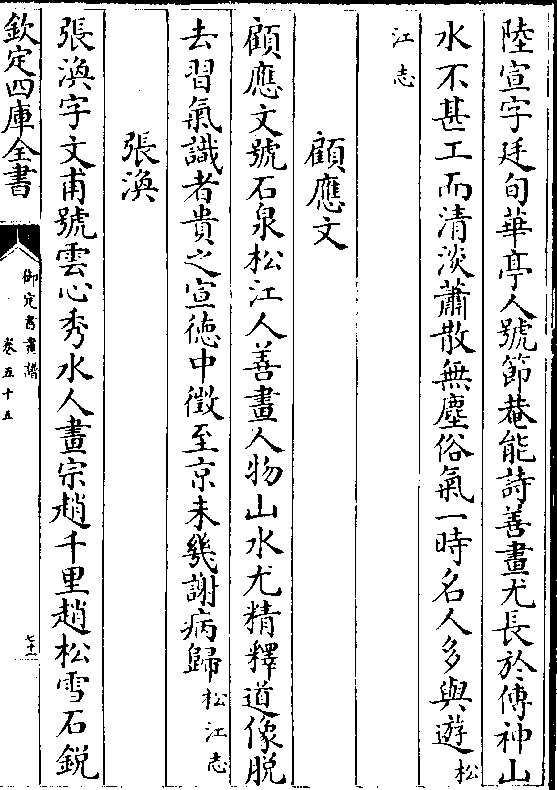 陸宣字廷旬華亭人號節菴能詩善畫尤長於傳神山
水不甚工而清淡蕭散無塵俗氣一時名人多與遊松
江志
顧應文
顧應文號石泉松江人善畫人物山水尤精釋道像脫
去習氣識者貴之宣徳中徵至京未幾謝病歸松江志
張渙
張渙字文甫號雲心秀水人畫宗趙千里趙松雪石銳
欽定四庫全書
御定書畫譜
卷五十五